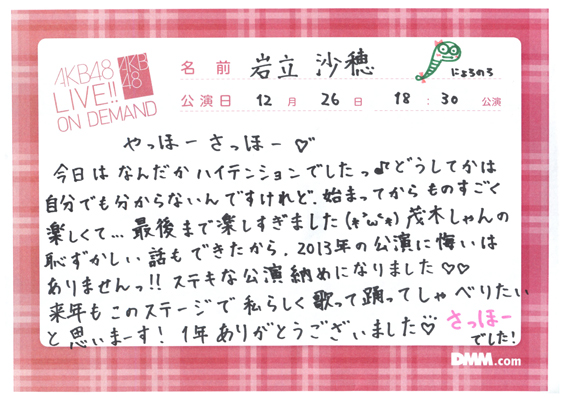 AKB48
LIVE!!
ON DEMAND
AKB
48
名前 岩立 沙穂
にょろのろ
公演日 12月 26日 18:30 公演
やっほー さっほー♡
今日は なんだか ハイテンションでしたっ♪どうしてかは
自分でも分からないんですけれど、始まってから ものすごく
楽しくて…最後まで楽しすぎました(*'ω'*) 茂木しゃんの
恥ずかしい 話もできたから、2013年の公演に悔いは
ありませんっ!! ステキな公演納めになりました♡♡
来年も このステージで 私らしく 歌って踊ってしゃべりたい
と 思いまーす! 1年ありがとうございました♡ さっほー
でした!
DMM.com